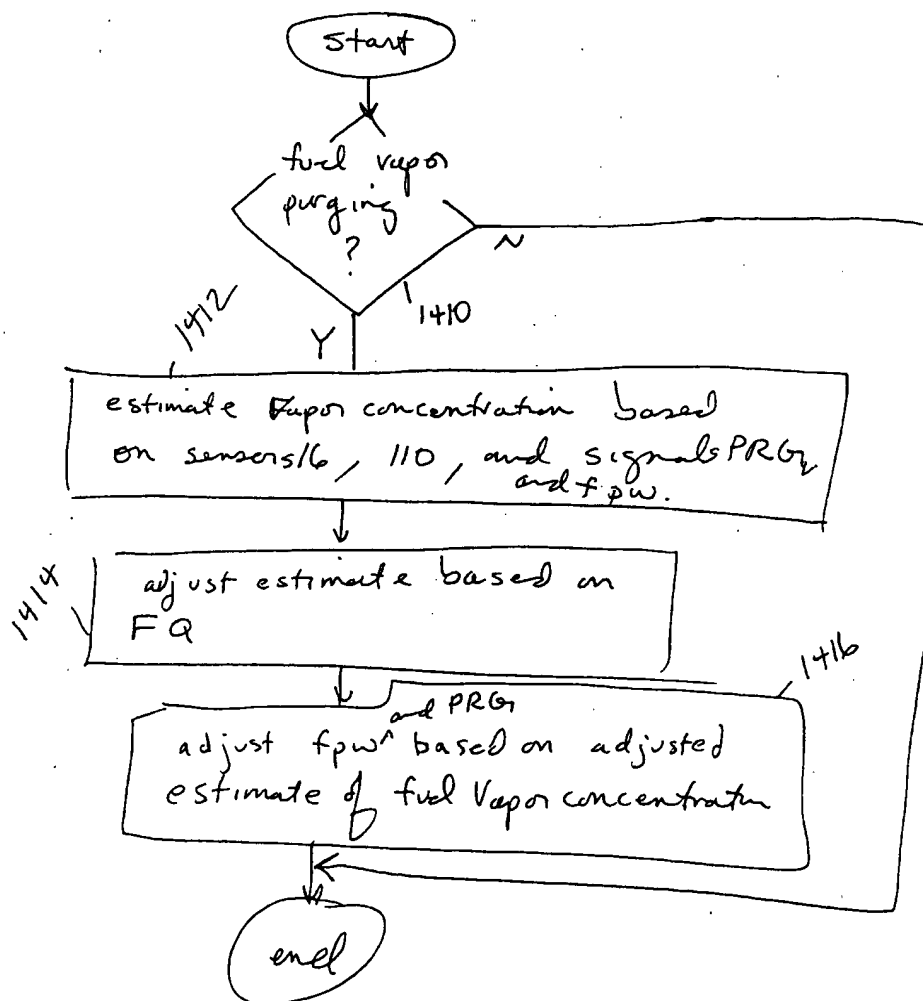 start
fuel vapor
purging
?
N
1410
1412
Y
estimate vapor concentration based
on sensors 16, 110, and signals PRG,
and fpw.
1414
adjust estimate based on
FQ
1416
and PRG
adjust fpw ^ based on adjusted
estimate of fuel vapor concentration
end